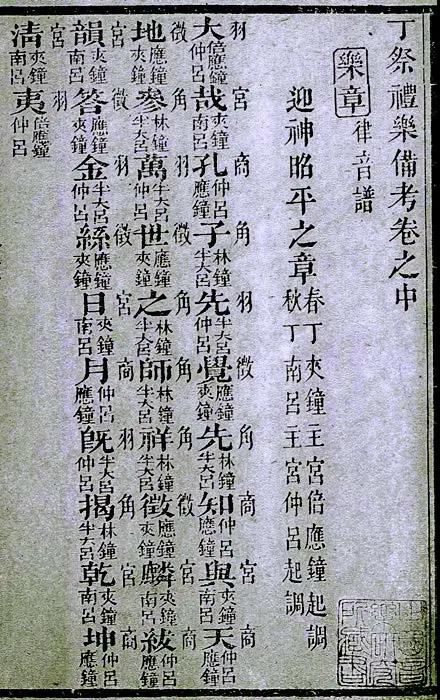 丁祭禮樂備考卷之中
樂章 律音譜
迎神昭平之章 春丁夾鐘主宮倍應鐘起調 秋丁南呂主宮仲呂起調
羽大倍應鐘仲呂 宮哉夾鐘南呂 商孔仲呂應鐘 角子林鐘半大呂 羽先半大呂仲呂 徵覺應鐘夾鐘 角先林鐘半大呂 商知仲呂應鐘 宮與夾鐘南呂 商天仲呂應鐘
徵地應鐘夾鐘 角參林鐘半大呂 羽萬半大呂仲呂 徵世應鐘夾鐘 角之林鐘半大呂 角師林鐘半大呂 角祥林鐘半大呂 徵徵應鐘夾鐘 宮麟夾鐘南呂 商紱仲呂應鐘
宮韻夾鐘南呂 徵答應鐘夾鐘 羽金半大呂仲呂 徵絲應鐘夾鐘 宮日夾鐘南呂 商月仲呂應鐘 羽既半大呂仲呂 角揭林鐘半大呂 宮乾夾鐘南呂 商坤仲呂應鐘
宮清夾鐘南呂 羽夷倍應鐘仲呂